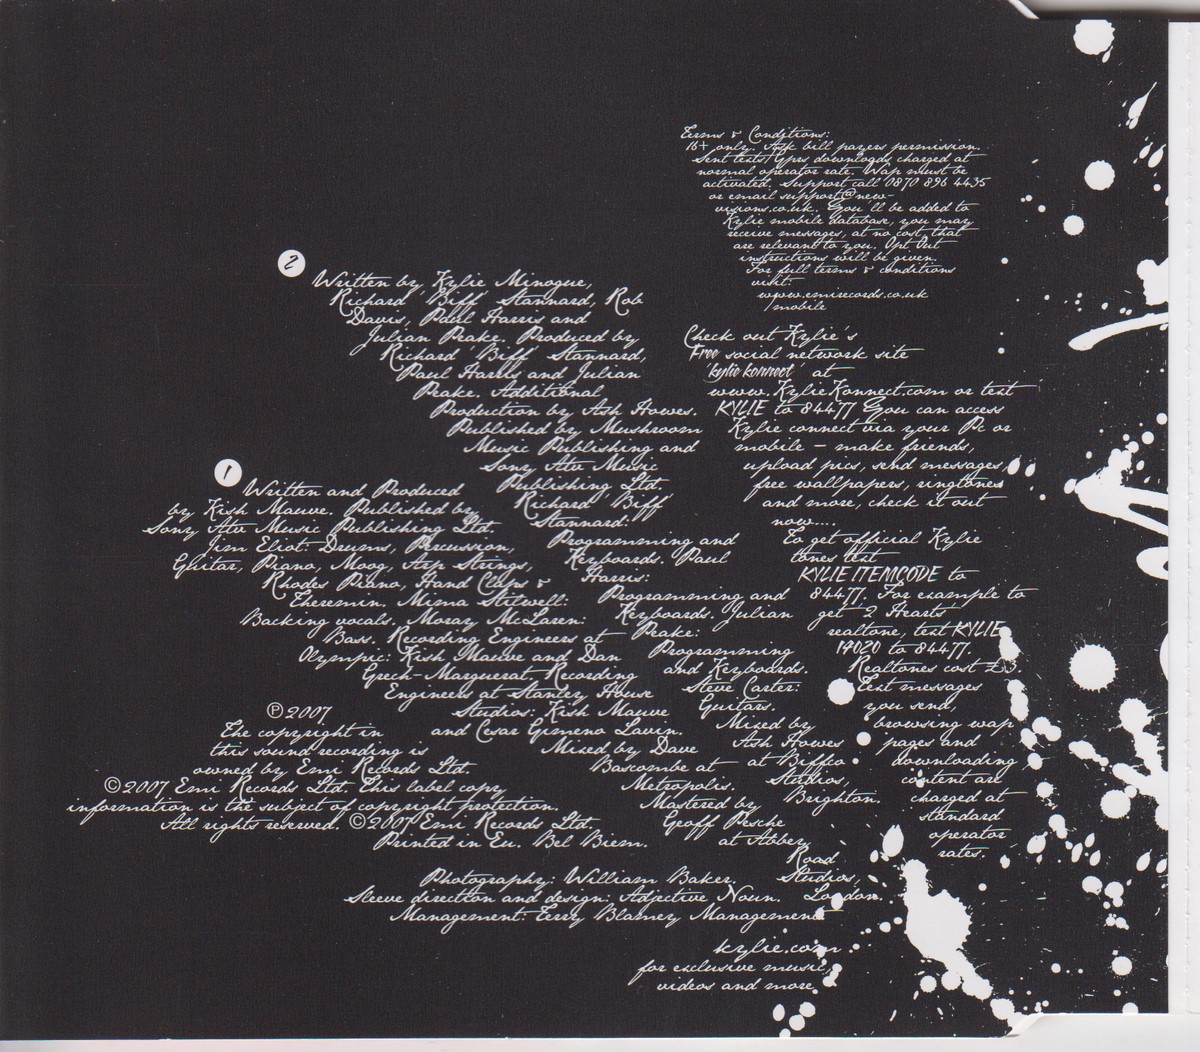 Terms & Conditions:
16+ only. Ask bill payers permission.
Sent texts/Gprs downloads charged at
normal operator rate. Wap must be
activated. Support call 0870 896 4435
or email support@new-
visions.co.uk. You'll be added to
Kylie mobile database, you may
receive messages, at no cost, that
are relevant to you. Opt Out
instructions will be given.
For full terms & conditions
visit:
www.emirecords.co.uk
/mobile
Check out Kylie's
Free social network site
'kylie konnect' at
www.KylieKonnect.com or text
KYLIE to 84477 You can access
Kylie connect via your Pc or
mobile – make friends,
upload pics, send messages,
free wallpapers, ringtones
and more, check it out
now....
To get official Kylie
tones text
KYLIE ITEMCODE to
84477. For example to
get '2 Hearts'
realtone, text KYLIE
14020 to 84477.
Realtones cost £3.
Text messages
you send,
browsing wap
pages and
downloading
content are
charged at
standard
operator
rates.
2
Written by Kylie Minogue,
Richard 'Biff' Stannard, Rob
Davis, Paul Harris and
Julian Peake. Produced by
Richard 'Biff' Stannard,
Paul Harris and Julian
Peake. Additional
Production by Ash Howes.
Published by Mushroom
Music Publishing and
Sony Atv Music
Publishing Ltd.
Richard 'Biff'
Stannard:
Programming and
Keyboards. Paul
Harris:
Programming and
Keyboards. Julian
Peake:
Programming
and Keyboards.
Steve Carter:
Guitars.
Mixed by
Ash Howes
at Biffco
Studios,
Brighton.
1
Written and Produced
by Kish Mauve. Published by
Sony Atv Music Publishing Ltd.
Jim Eliot: Drums, Percussion,
Guitar, Piano, Moog, Arp Strings,
Rhodes Piano, Hand Claps &
Theremin. Mima Stilwell:
Backing vocals. Moray McLaren:
Bass. Recording Engineers at
Olympic: Kish Mauve and Dan
Grech-Marguerat, Recording
Engineers at Stanley House
Studios: Kish Mauve
and Cesar Gimeno Lavin.
Mixed by Dave
Bascombe at
Metropolis.
Mastered by
Geoff Pesche
at Abbey
Road
Studios,
London.
℗ 2007
The copyright in
this sound recording is
owned by Emi Records Ltd.
© 2007 Emi Records Ltd. This label copy
information is the subject of copyright protection.
All rights reserved. © 2007 Emi Records Ltd.
Printed in Eu. Bel Biem.
Photography: William Baker.
Sleeve direction and design: Adjective Noun.
Management: Terry Blamey Management
kylie.com
for exclusive music,
videos and more.